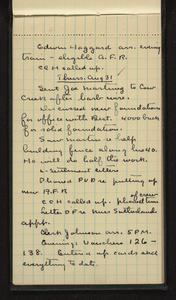 Edwin Haggard arr. evening
train - eligible A.F.R.
CCH called up.
Thurs. Aug 31
Sent Joe Martinez to Cow
Creek after barb wire.
Discussed new foundations
for office with Bert. 4000 bucks
for solid foundation.
Saw Martin to help
building fence along his 40.
He will do half the work.
Settlement letters
Phoned PVD re putting up
new A.F.R.
CCH called up. of crew
Letter DF re Miss Sutherland's
appt.
Clerk Johnson arr. 5 P.M.
Evening: Vouchers 126 -
138. Entered up cards and
everything to date.